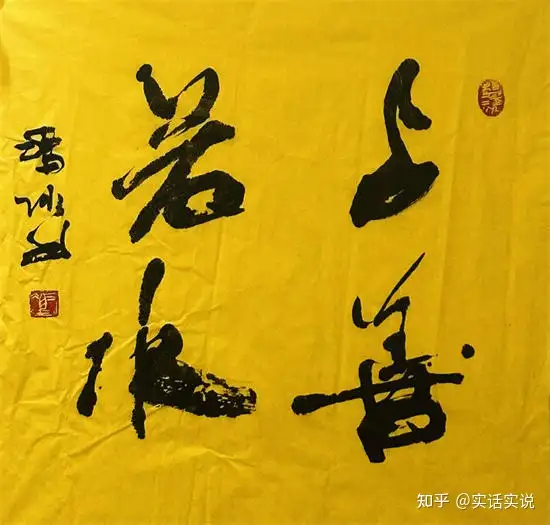 上善
若水
知乎 @实话实说